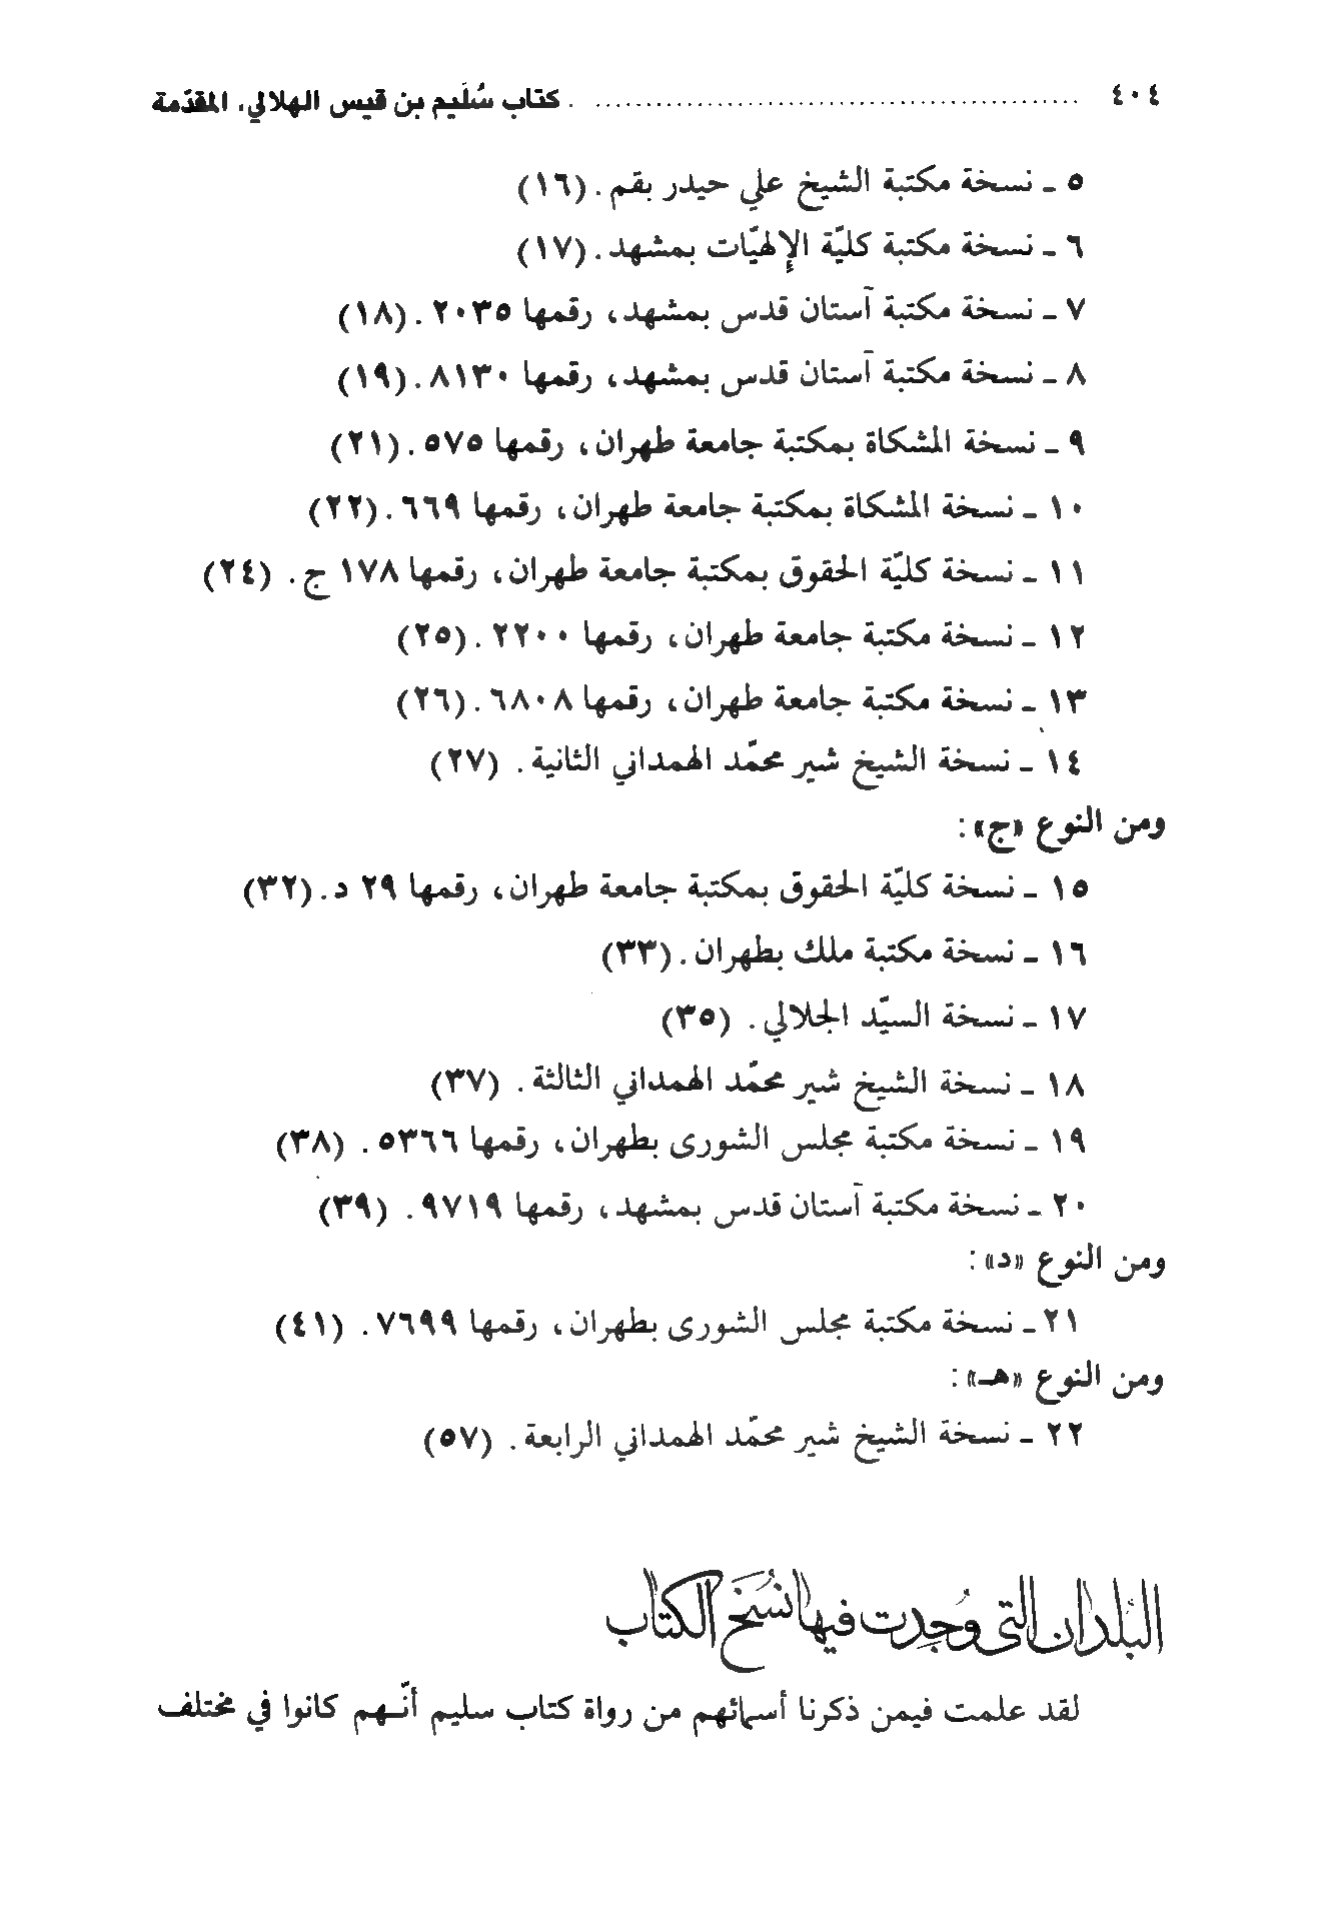 ٤٠٤ ........................................ كتاب سُلَيم بن قيس الهلالي، المقدّمة
٥ ـ نسخة مكتبة الشيخ علي حيدر بقم. (١٦)
٦ ـ نسخة مكتبة كليّة الإلهيّات بمشهد. (١٧)
٧ ـ نسخة مكتبة آستان قدس بمشهد، رقمها ٢٠٣٥. (١٨)
٨ ـ نسخة مكتبة آستان قدس بمشهد، رقمها ٨١٣٠. (١٩)
٩ ـ نسخة المشكاة بمكتبة جامعة طهران، رقمها ٥٧٥. (٢١)
١٠ ـ نسخة المشكاة بمكتبة جامعة طهران، رقمها ٦٦٩. (٢٢)
١١ ـ نسخة كليّة الحقوق بمكتبة جامعة طهران، رقمها ١٧٨ ج. (٢٤)
١٢ ـ نسخة مكتبة جامعة طهران، رقمها ٢٢٠٠. (٢٥)
١٣ ـ نسخة مكتبة جامعة طهران، رقمها ٦٨٠٨. (٢٦)
١٤ ـ نسخة الشيخ شير محمّد الهمداني الثانية. (٢٧)
ومن النوع «ج»:
١٥ ـ نسخة كليّة الحقوق بمكتبة جامعة طهران، رقمها ٢٩ د. (٣٢)
١٦ ـ نسخة مكتبة ملك بطهران. (٣٣)
١٧ ـ نسخة السيّد الجلالي. (٣٥)
١٨ ـ نسخة الشيخ شير محمّد الهمداني الثالثة. (٣٧)
١٩ ـ نسخة مكتبة مجلس الشورى بطهران، رقمها ٥٣٦٦. (٣٨)
٢٠ ـ نسخة مكتبة آستان قدس بمشهد، رقمها ٩٧١٩. (٣٩)
ومن النوع «د»:
٢١ ـ نسخة مكتبة مجلس الشورى بطهران، رقمها ٧٦٩٩. (٤١)
ومن النوع «هـ»:
٢٢ ـ نسخة الشيخ شير محمّد الهمداني الرابعة. (٥٧)
البُلدان التي وُجِدت فيها نُسَخ الكتاب
لقد علمت فيمن ذكرنا أسمائهم من رواة كتاب سليم أنّـهم كانوا في مختلف